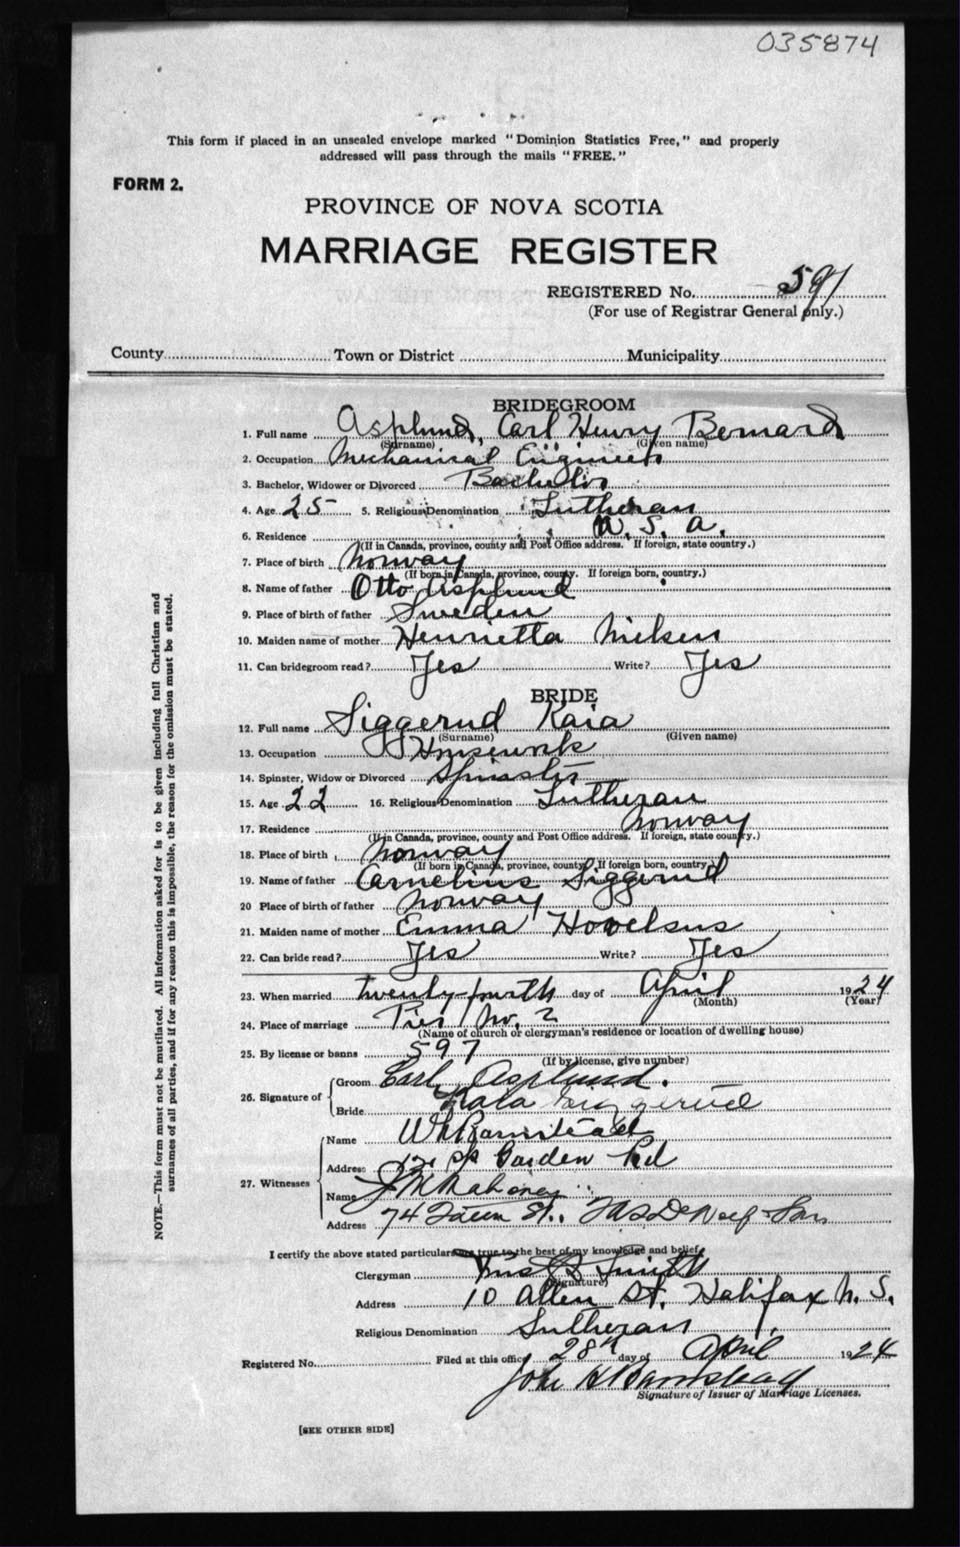 035874
This form if placed in an unsealed envelope marked "Dominion Statistics Free," and properly
addressed will pass through the mails "FREE."
FORM 2.
PROVINCE OF NOVA SCOTIA
MARRIAGE REGISTER
REGISTERED No. 597
(For use of Registrar General only.)
County Town or District Municipality
BRIDEGROOM
1. Full name Asplund, Carl Henry Bernard
(Surname) (Given name)
2. Occupation Mechanical Engineer
3. Bachelor, Widower or Divorced Bachelor
4. Age 25 5. Religious Denomination Lutheran
6. Residence U. S. A.
(If in Canada, province, county and Post Office address. If foreign, state country.)
7. Place of birth Norway
(If born in Canada, province, county. If foreign born, country.)
8. Name of father Otto Asplund
9. Place of birth of father Sweden
10. Maiden name of mother Henrietta Nielsen
11. Can bridegroom read? Yes Write? Yes
BRIDE
12. Full name Siggerud Kaia
(Surname) (Given name)
13. Occupation Housework
14. Spinster, Widow or Divorced Spinster
15. Age 22 16. Religious Denomination Lutheran
17. Residence Norway
(If in Canada, province, county and Post Office address. If foreign, state country.)
18. Place of birth Norway
(If born in Canada, province, county. If foreign born, country.)
19. Name of father Cornelius Siggerud
20 Place of birth of father Norway
21. Maiden name of mother Emma
22. Can bride read? Yes Write? Yes
23. When married twenty-fourth day of April 1924
(Month) (Year)
24. Place of marriage Pier No. 2
(Name of church or clergyman's residence or location of dwelling house)
25. By license or banns 597
(If by license, give number)
26. Signature of Groom Carl Asplund.
Bride Kaia Siggerud
27. Witnesses Name
Address Garden Rd
Name J M Mahoney
Address 74 St.,
I certify the above stated particulars are true to the best of my knowledge and belief,
Clergyman
(Signature)
Address 10 Allen St. Halifax N. S.
Religious Denomination Lutheran
Registered No. Filed at this office 28th day of April 1924
John H Barnstead
Signature of Issuer of Marriage Licenses.
[SEE OTHER SIDE]
NOTE.—This form must not be mutilated. All information asked for is to be given including full Christian and
surnames of all parties, and if for any reason this is impossible, the reason for the omission must be stated.